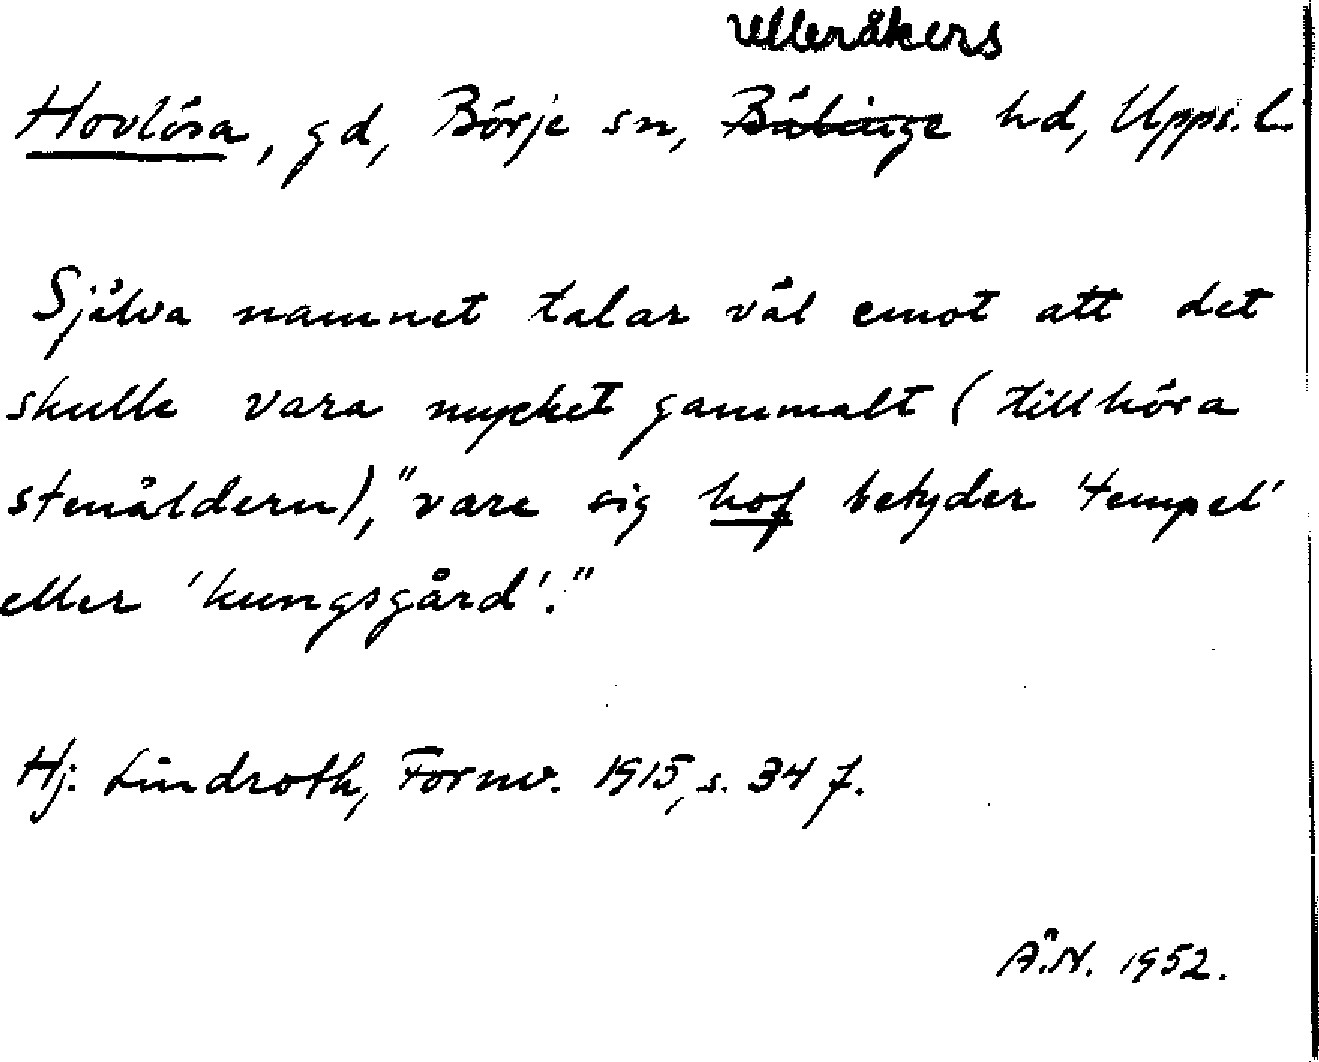 Ulleråkers
Hovlösa, gd, Börje sn, Bälinge hd, Upps. l.
Själva namnet talar väl emot att det
skulle vara mycket gammalt (tillhöra
stenåldern), "vare sig hof betyder 'tempel'
eller 'kungsgård'."
Hj. Lindroth, Fornv. 1915, s. 34 f.
Å.N. 1952.